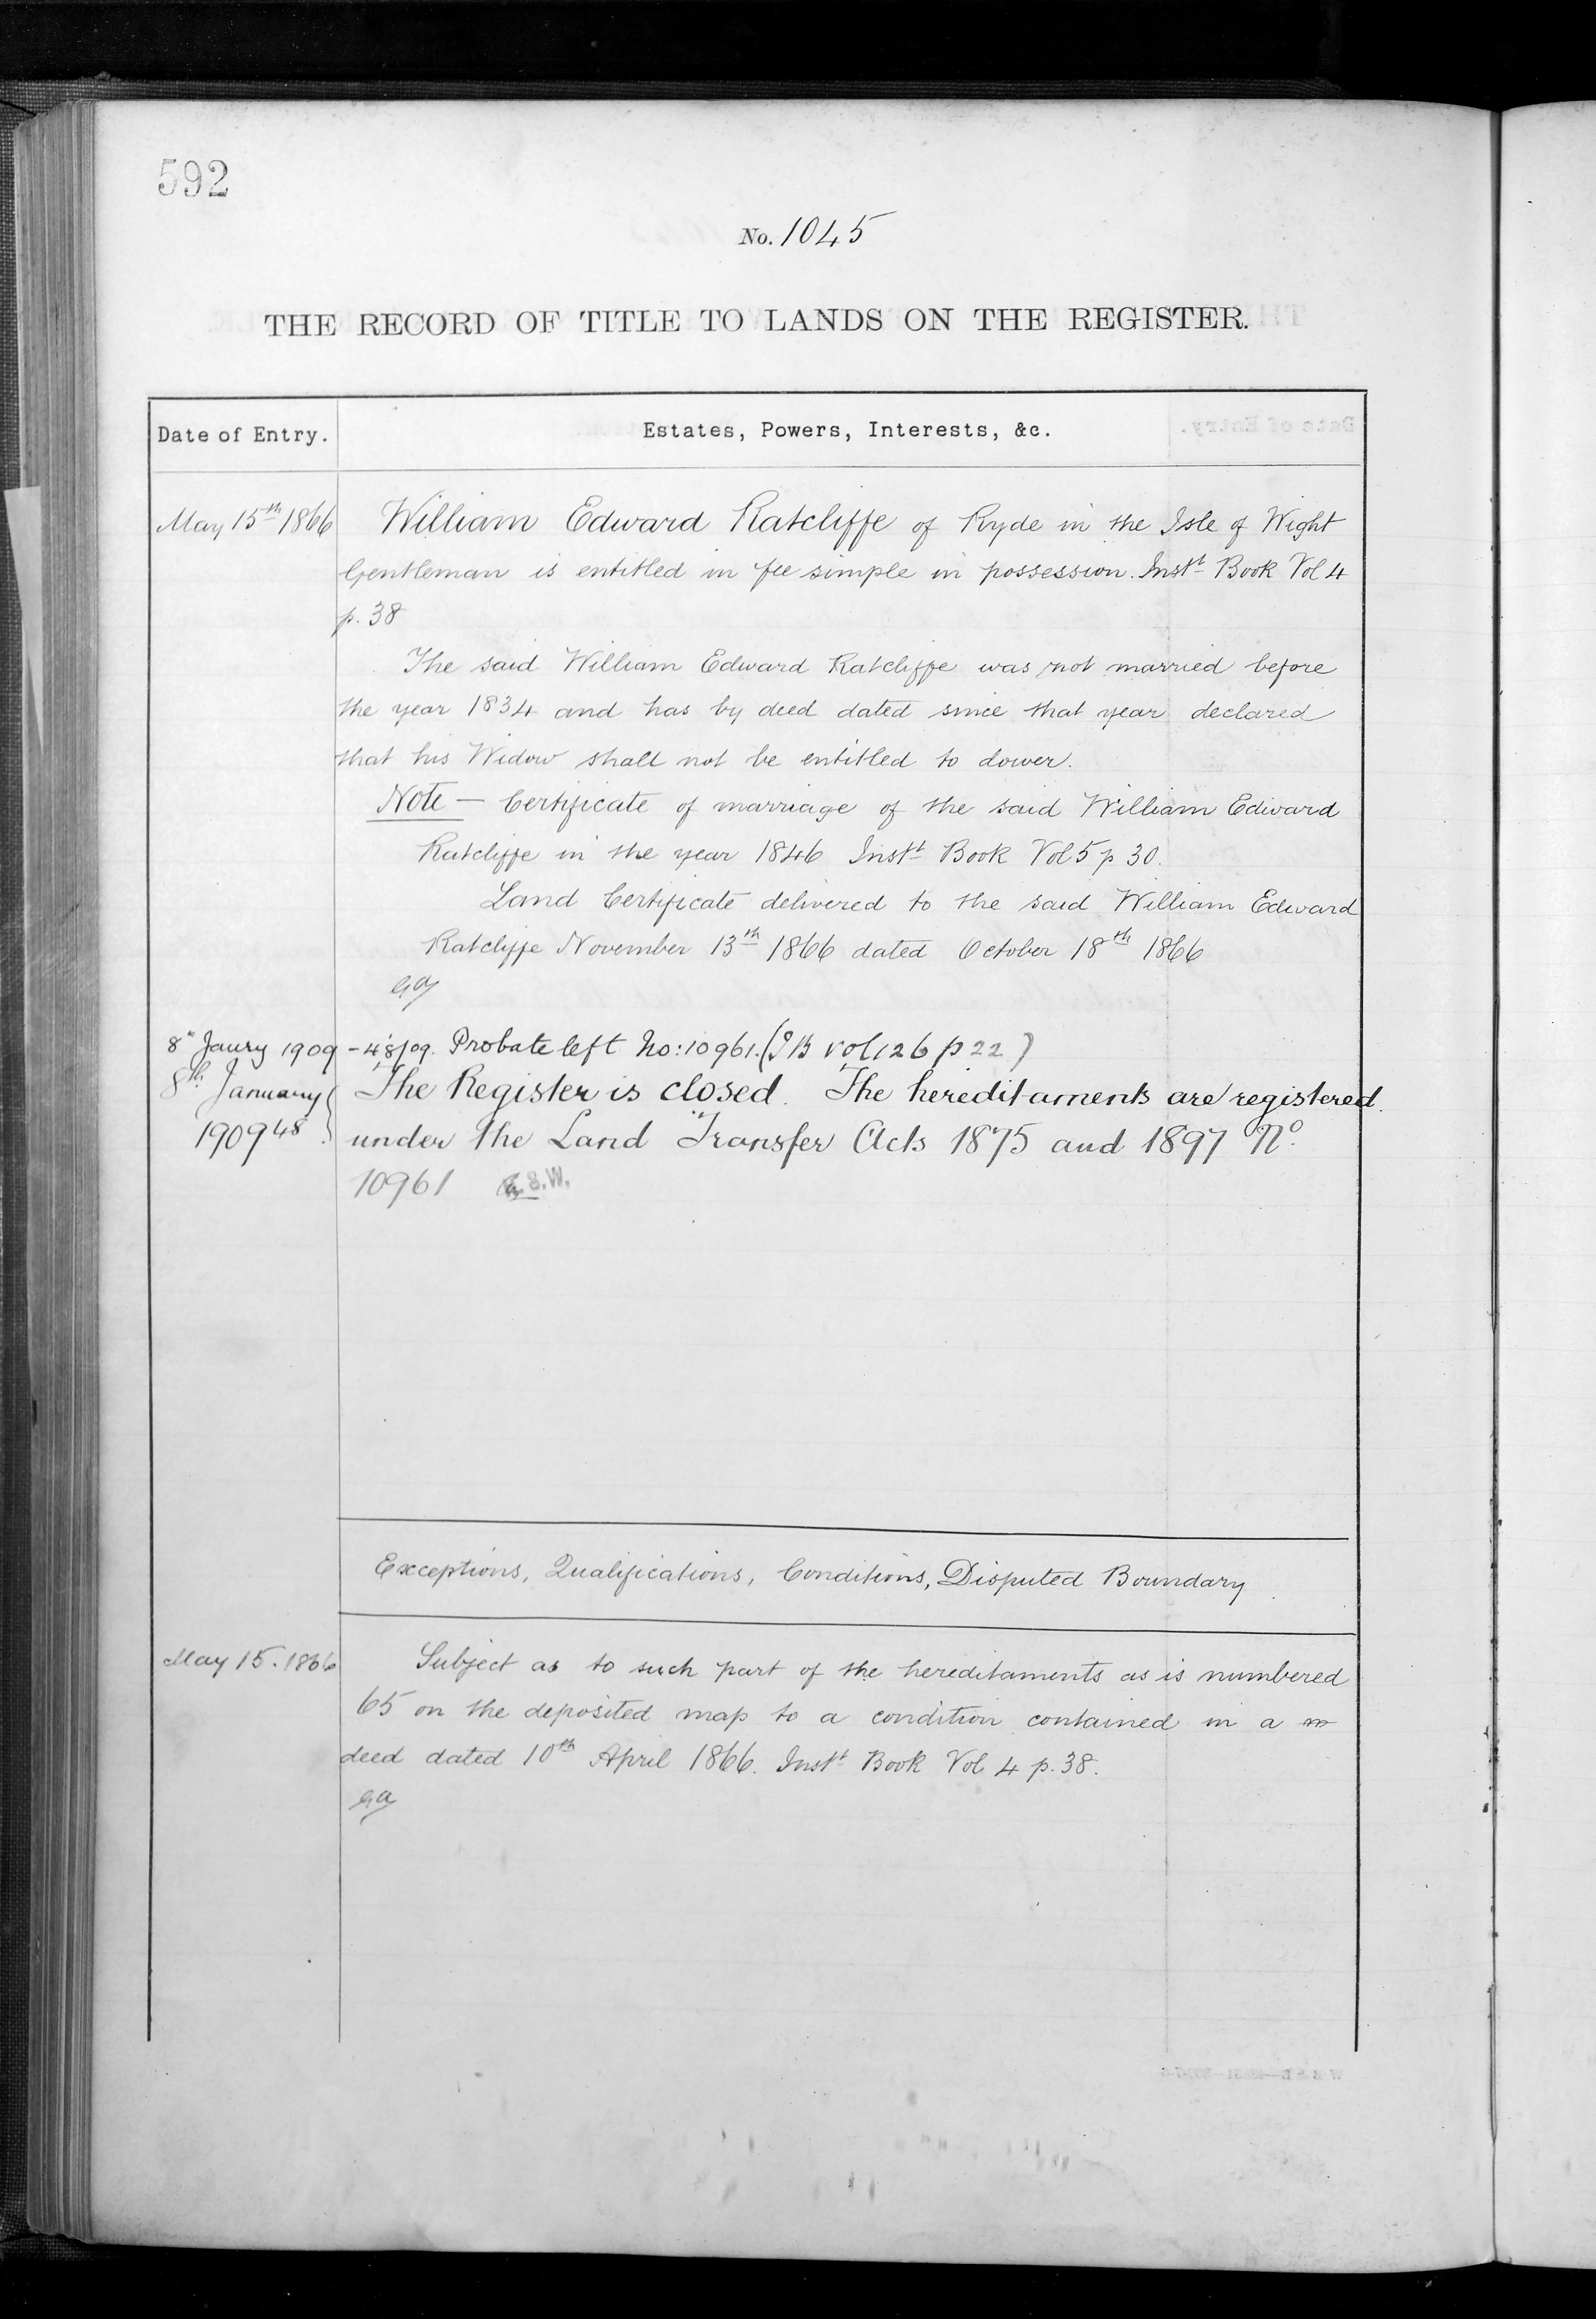 592
No. 1045
THE RECORD OF TITLE TO LANDS ON THE REGISTER.
Date of Entry.
Estates, Powers, Interests, &c.
May 15th 1866
William Edward Ratcliffe of Ryde in the Isle of Wight
Gentleman is entitled in fee simple in possession. Instt Book Vol 4
p. 38
The said William Edward Ratcliffe was not married before
the year 1834 and has by deed dated since that year declared
that his Widow shall not be entitled to dower.
Note — Certificate of marriage of the said William Edward
Ratcliffe in the year 1846 Instt Book Vol 5 p 30.
Land Certificate delivered to the said William Edward
Ratcliffe November 13th 1866 dated October 18th 1866
8th Jaury 1909 - 48/09. Probate left No: 10961. (IB vol 126 p 22)
8th January
1909 48
The Register is closed. The hereditaments are registered
under the Land Transfer Acts 1875 and 1897 No.
10961
Exceptions, Qualifications, Conditions, Disputed Boundary
May 15. 1866
Subject as to such part of the hereditaments as is numbered
65 on the deposited map to a condition contained in a
deed dated 10th April 1866. Instt Book Vol 4 p. 38.